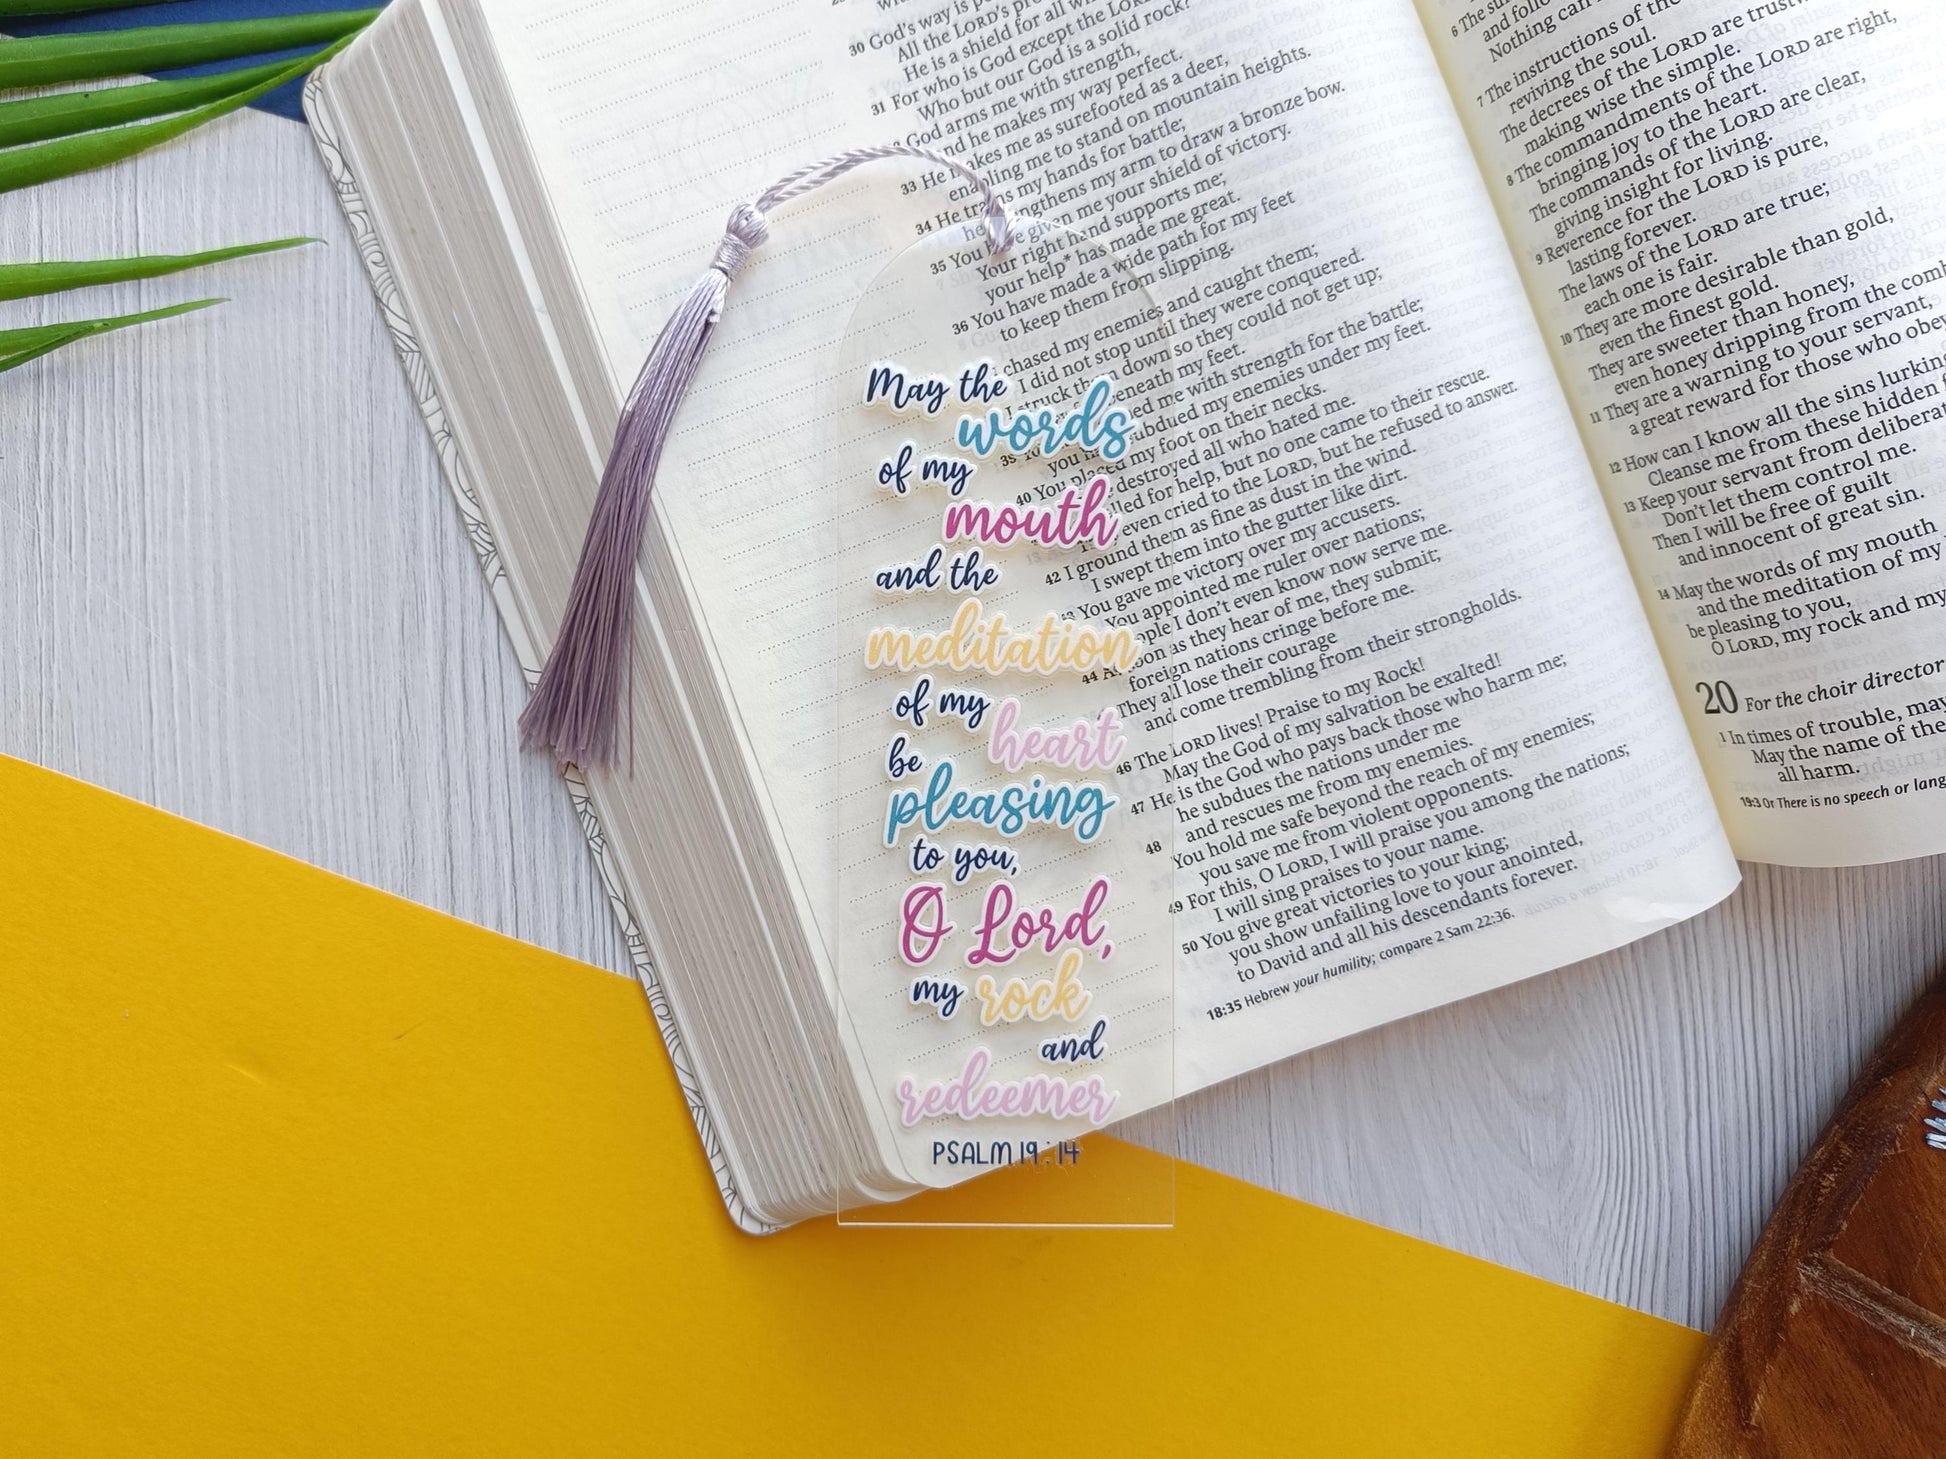 30 God's way is
All the LORD's
He is a shield for all
For who is God except the
31 Who but our God is a solid rock?
God arms me with strength,
and he makes my way perfect.
33 He makes me as surefooted as a deer,
enabling me to stand on mountain heights.
34 He trains my hands for battle;
he strengthens my arm to draw a bronze bow.
35 You have given me your shield of victory.
Your right hand supports me;
your help* has made me great.
36 You have made a wide path for my feet
to keep them from slipping.
chased my enemies and caught them;
I did not stop until they were conquered.
I struck them down so they could not get up;
beneath my feet.
me with strength for the battle;
subdued my enemies under my feet.
40 You placed my foot on their necks.
destroyed all who hated me.
called for help, but no one came to their rescue.
even cried to the LORD, but he refused to answer.
42 I ground them as fine as dust in the wind.
I swept them into the gutter like dirt.
You gave me victory over my accusers.
You appointed me ruler over nations;
people I don't even know now serve me.
44 As soon as they hear of me, they submit;
foreign nations cringe before me.
They all lose their courage
and come trembling from their strongholds.
46 The LORD lives! Praise to my Rock!
May the God of my salvation be exalted!
47 He is the God who pays back those who harm me;
he subdues the nations under me
48 and rescues me from my enemies.
You hold me safe beyond the reach of my enemies;
you save me from violent opponents.
49 For this, O LORD, I will praise you among the nations;
I will sing praises to your name.
50 You give great victories to your king;
you show unfailing love to your anointed,
to David and all his descendants forever.
18:35 Hebrew your humility; compare 2 Sam 22:36.
May the
words
of my
mouth
and the
meditation
of my
heart
be
pleasing
to you,
O Lord,
my rock
and
redeemer
PSALM 19:14
6 The
and follow
Nothing can
7 The instructions of the
reviving the soul.
The decrees of the LORD are
making wise the simple.
8 The commandments of the LORD are right,
bringing joy to the heart.
The commands of the LORD are clear,
giving insight for living.
9 Reverence for the LORD is pure,
lasting forever.
The laws of the LORD are true;
each one is fair.
10 They are more desirable than gold,
even the finest gold.
They are sweeter than honey,
even honey dripping from the
11 They are a warning to your servant,
a great reward for those who
12 How can I know all the sins
Cleanse me from these hidden
13 Keep your servant from
Don't let them control me.
Then I will be free of guilt
and innocent of great sin.
14 May the words of my mouth
and the meditation of my
be pleasing to you,
O LORD, my rock and my
20 For the choir director
1 In times of trouble, may
May the name of the
all harm.
19:3 Or There is no speech or